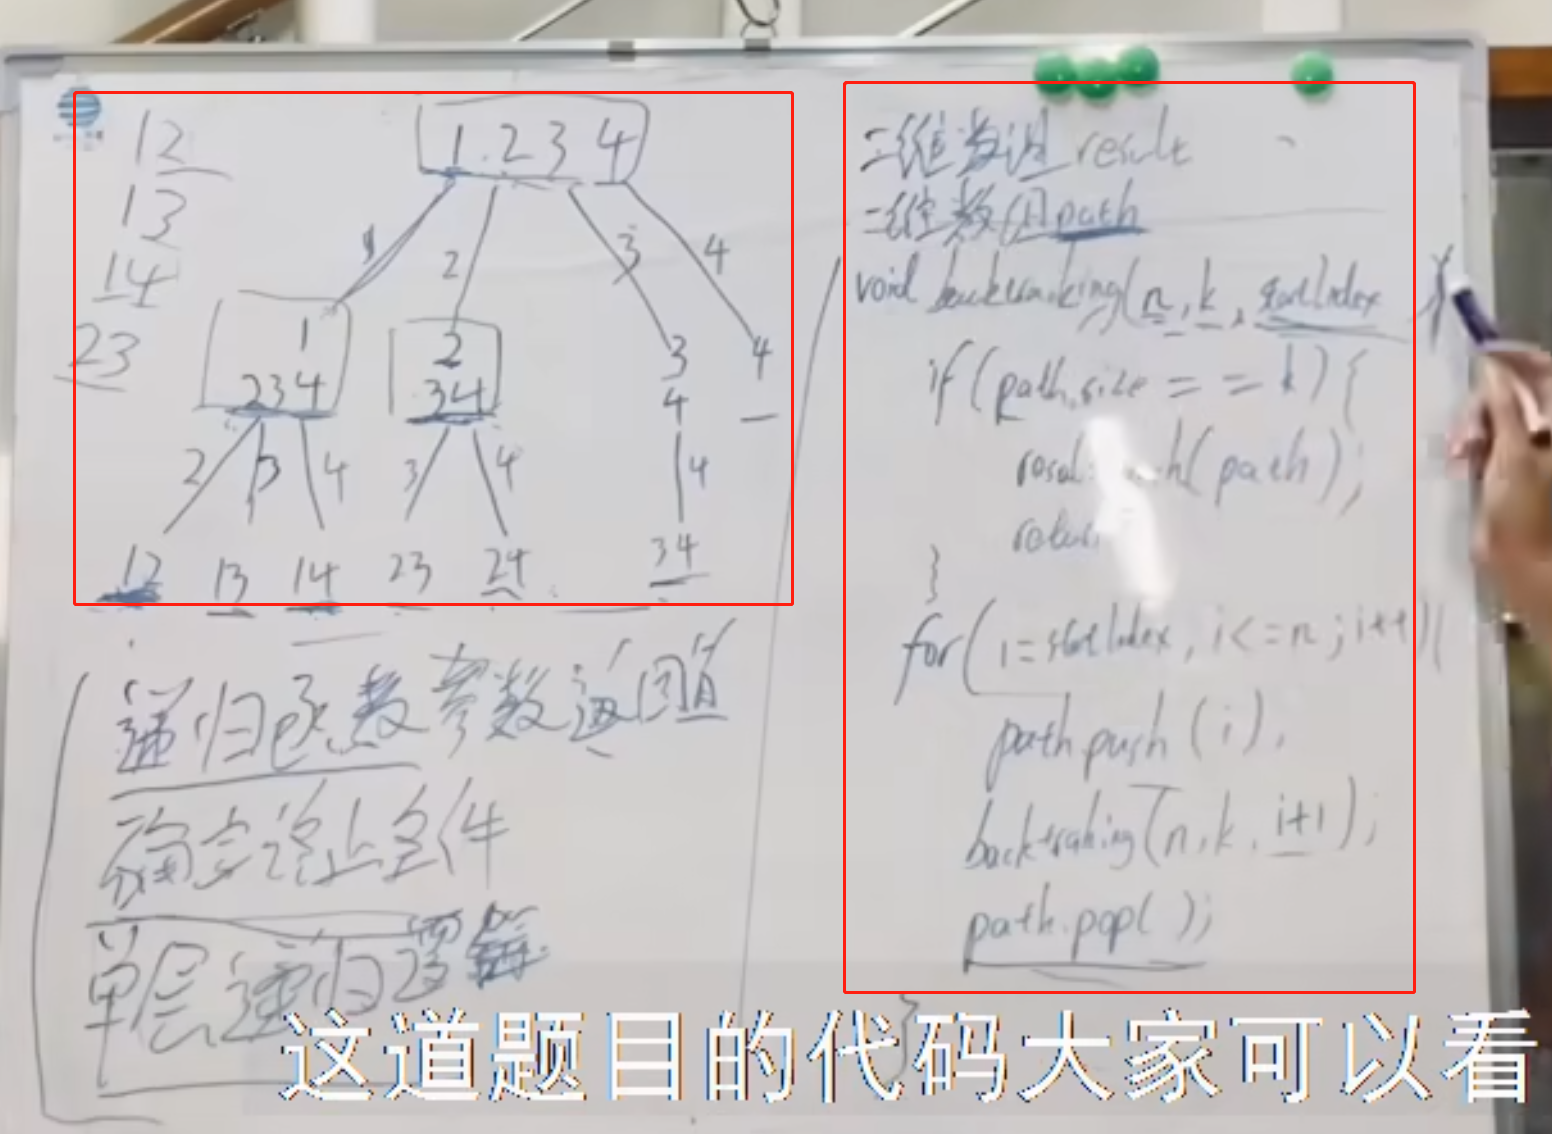 12
13
14
23
1 . 2 3 4
1 2 3 4
1
234
2
34
3
4
4
—
2 3 4
3 4
4
12 13 14 23 24 34
递归函数参数返回值
确定终止条件
单层递归逻辑
二维数组 result
一维数组 path
void backtracking(n, k, startIndex )
if (path.size == k) {
(path);
return
}
for( i=startIndex, i<=n; i++){
path.push (i),
backtraking(n, k, i+1);
path.pop( );
}
这道题目的代码大家可以看